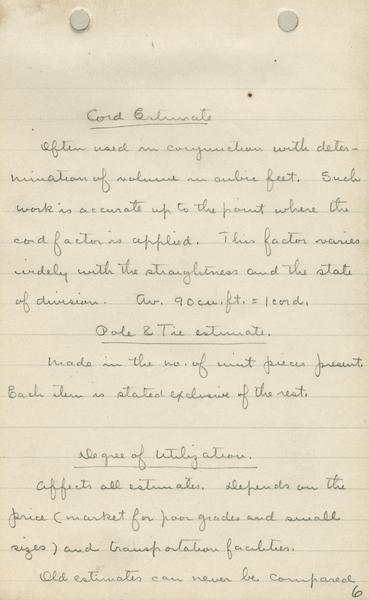 Cord Estimate
Often used in conjunction with deter-
mination of volume in cubic feet. Such
work is accurate up to the point where the
cord factor is applied. This factor varies
widely with the straightness and the state
of division. Av. 90 cu. ft. = 1 cord.
Pole & Tie estimate.
Made in the no. of unit pieces present.
Each item is stated exclusive of the rest.
Degree of Utilization.
Affects all estimates. Depends on the
price (market for poor grades and small
sizes) and transportation facilities.
Old estimates can never be compared
6